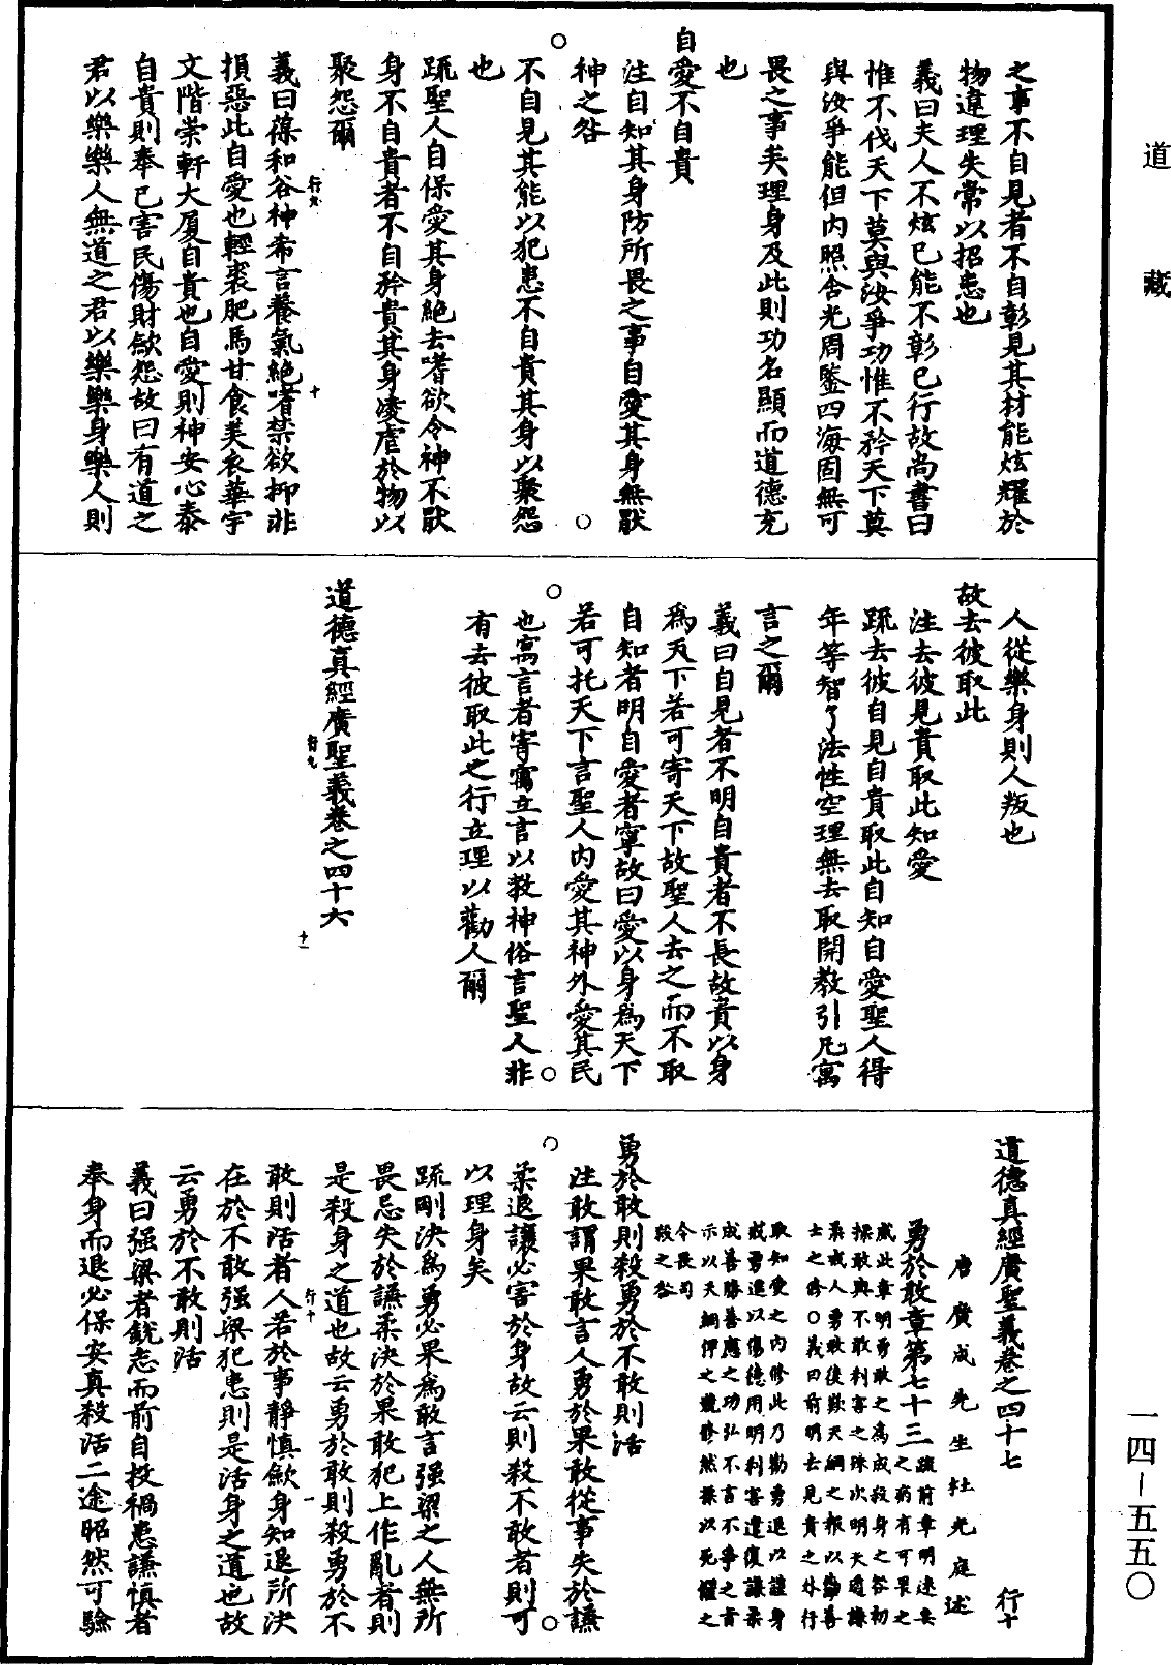 道藏
之事不自見者不自彰見其材能炫耀於
物違理失常以招患也
義曰夫人不炫己能不彰己行故尚書曰
惟不伐天下莫與汝爭功惟不矜天下莫
與汝爭能但內照含光周鑒四海固無可
畏之事矣理身及此則功名顯而道德充
也
自愛不自貴
注自知其身防所畏之事自愛其身無猒
神之咎
不自見其能以犯患不自貴其身以聚怨
也
疏聖人自保愛其身絕去嗜欲令神不猒
身不自貴者不自矜貴其身凌虐於物以
聚怨爾
義曰葆和谷神希言養氣絕嗜禁欲抑非
損惡此自愛也輕裘肥馬甘食美衣華宇
文階崇軒大厦自貴也自愛則神安心泰
自貴則奉己害民傷財歛怨故曰有道之
君以樂樂人無道之君以樂樂身樂人則
人從樂身則人叛也
故去彼取此
注去彼見貴取此知愛
疏去彼自見自貴取此自知自愛聖人得
年等智了法性空理無去取開教引凡寓
言之爾
義曰自見者不明自貴者不長故貴以身
為天下若可寄天下故聖人去之而不取
自知者明自愛者寧故曰愛以身為天下
若可托天下言聖人內愛其神外愛其民
也寓言者寄寓立言以教神俗言聖人非
有去彼取此之行立理以勸人爾
道德真經廣聖義卷之四十六
道德真經廣聖義卷之四十七 行十
唐廣成先生杜光庭述
勇於敢章第七十三 疏前章明迷妄
之病有可畏之
威此章明勇敢之為成殺身之咎初
標敢與不敢利害之殊次明天道謙
柔戒人勇敢後歎天綱之報以勸善
士之修○義曰前明去見貴之外行
取知愛之內修此乃勸勇退以謹身
戒勇進以傷德用明利害違復謙柔
成善勝善應之功弘不言不爭之貴
示以天綱俾之兢修然操以死懼之
令畏司
殺之咎
勇於敢則殺勇於不敢則活
注敢謂果敢言人勇於果敢從事失於謙
柔退讓必害於身故云則殺不敢者則可
以理身矣
疏剛決為勇必果為敢言强梁之人無所
畏忌失於謙柔決於果敢犯上作亂者則
是殺身之道也故云勇於敢則殺勇於不
敢則活者人若於事靜慎歛身知退所決
在於不敢强梁犯患則是活身之道也故
云勇於不敢則活
義曰强梁者銳志而前自投禍患謙慎者
奉身而退必保安真殺活二途昭然可驗
一四－五五〇